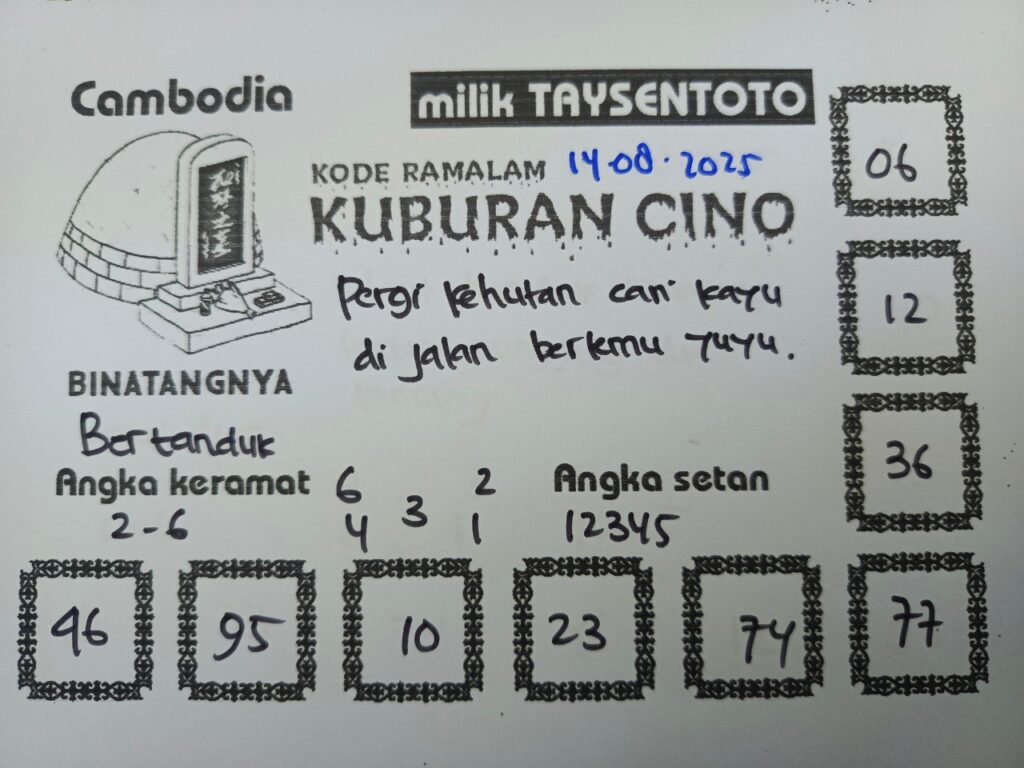 Cambodia
milik TAYSENTOTO
KODE RAMALAM 14-08-2025
KUBURAN CINO
Pergi kehutan cari kayu
di jalan bertemu yuyu.
BINATANGNYA
Bertanduk
Angka keramat
2-6
6 2
3
4 1
Angka setan
12345
06
12
36
46
95
10
23
74
77